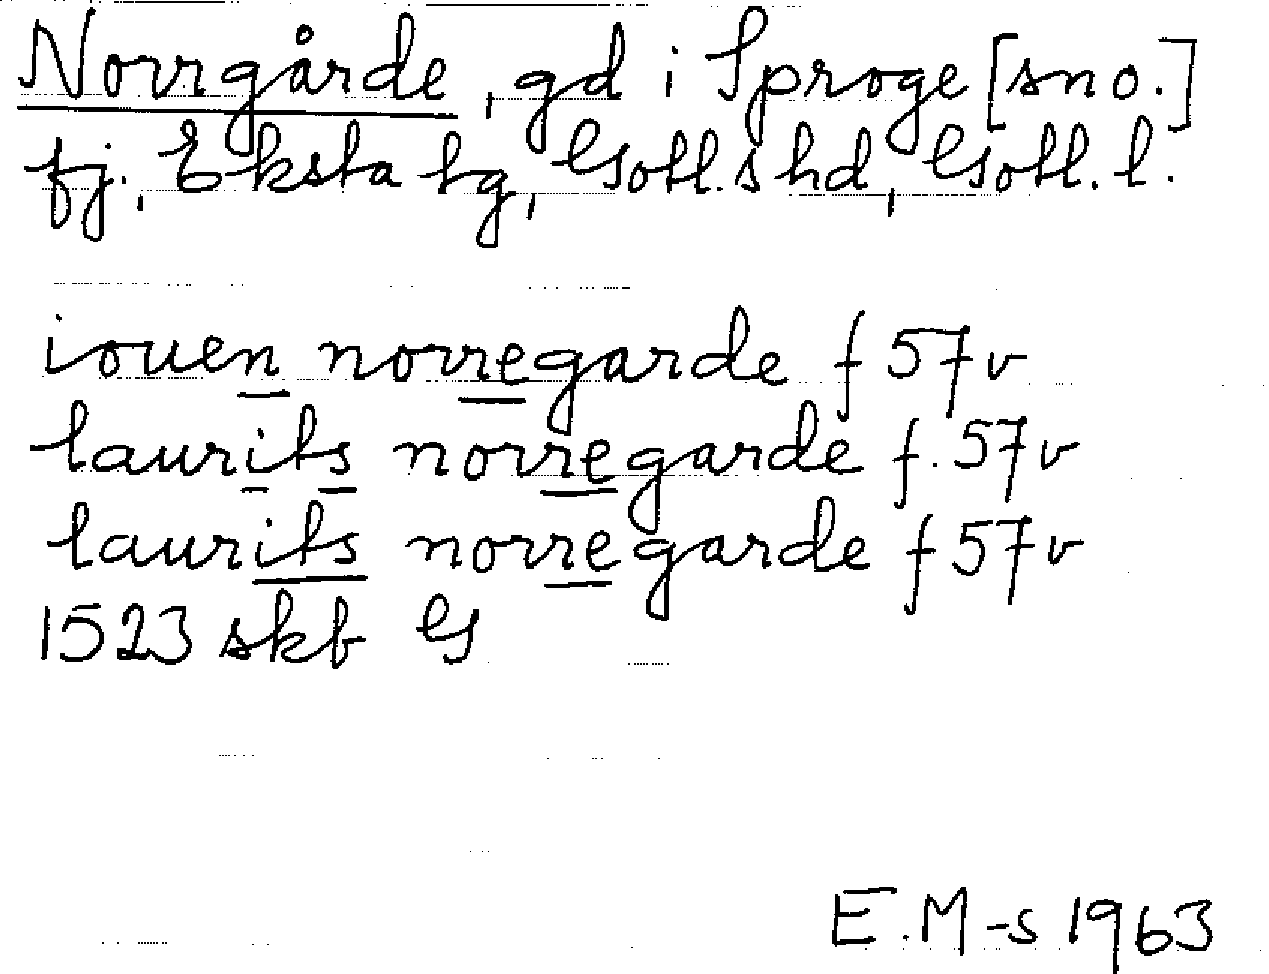 Norrgårde, gd i Sproge [sn o.]
fj., Eksta tg, Gotl. s hd, Gotl. l.
iouen norregarde f 57v
laurits norregarde f. 57v
laurits norregarde f 57v
1523 skb G
E.M-s 1963